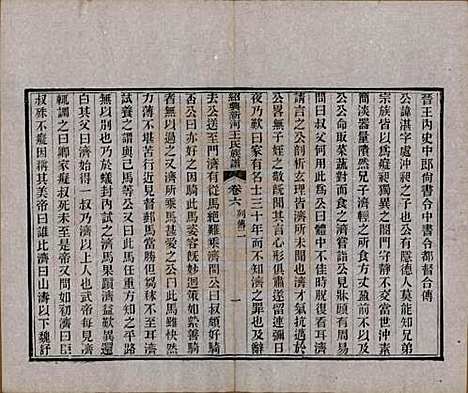 晉王內史中郎尚書令中書令都督合傳
公諱湛字處沖昶之子公有隱德人莫能知兄弟
宗族皆以爲癡昶獨異之闔門守靜不交當世沖素
簡淡器量隤然兄子濟輕之所食方丈盈前不以及
公公命取菜蔬對而食之濟嘗詣公見牀頭有周易
問曰叔父何用此公曰體中不佳時脫復看耳濟
請言之公剖析玄理皆濟所未聞也濟才氣抗邁於
公畧無子姪之敬旣聞其言心形俱肅遂留連彌日
夜乃歎曰家有名士三十年而不知濟之罪也及辭
紹興新河王氏族譜 卷六 列傳一 一
去公送至門濟有從馬絕難乘濟問公曰叔頗好騎
否公曰亦好之因騎此馬姿容旣妙迴策如縈善騎
者無以過之又濟所乘馬甚愛之公曰此馬雖快然
力薄不堪苦行近見督郵馬當勝但芻秣不至耳濟
試養之而與己馬等公又曰此馬任重方知之平路
無以別也於是當蟻封內試之濟馬果躓益歎異還
白其父曰濟始得一叔乃濟以上人也武帝每見濟
輒調之曰卿家癡叔死未至是又問如初濟曰臣
叔殊不癡因稱其美帝曰誰比濟曰山濤以下魏舒